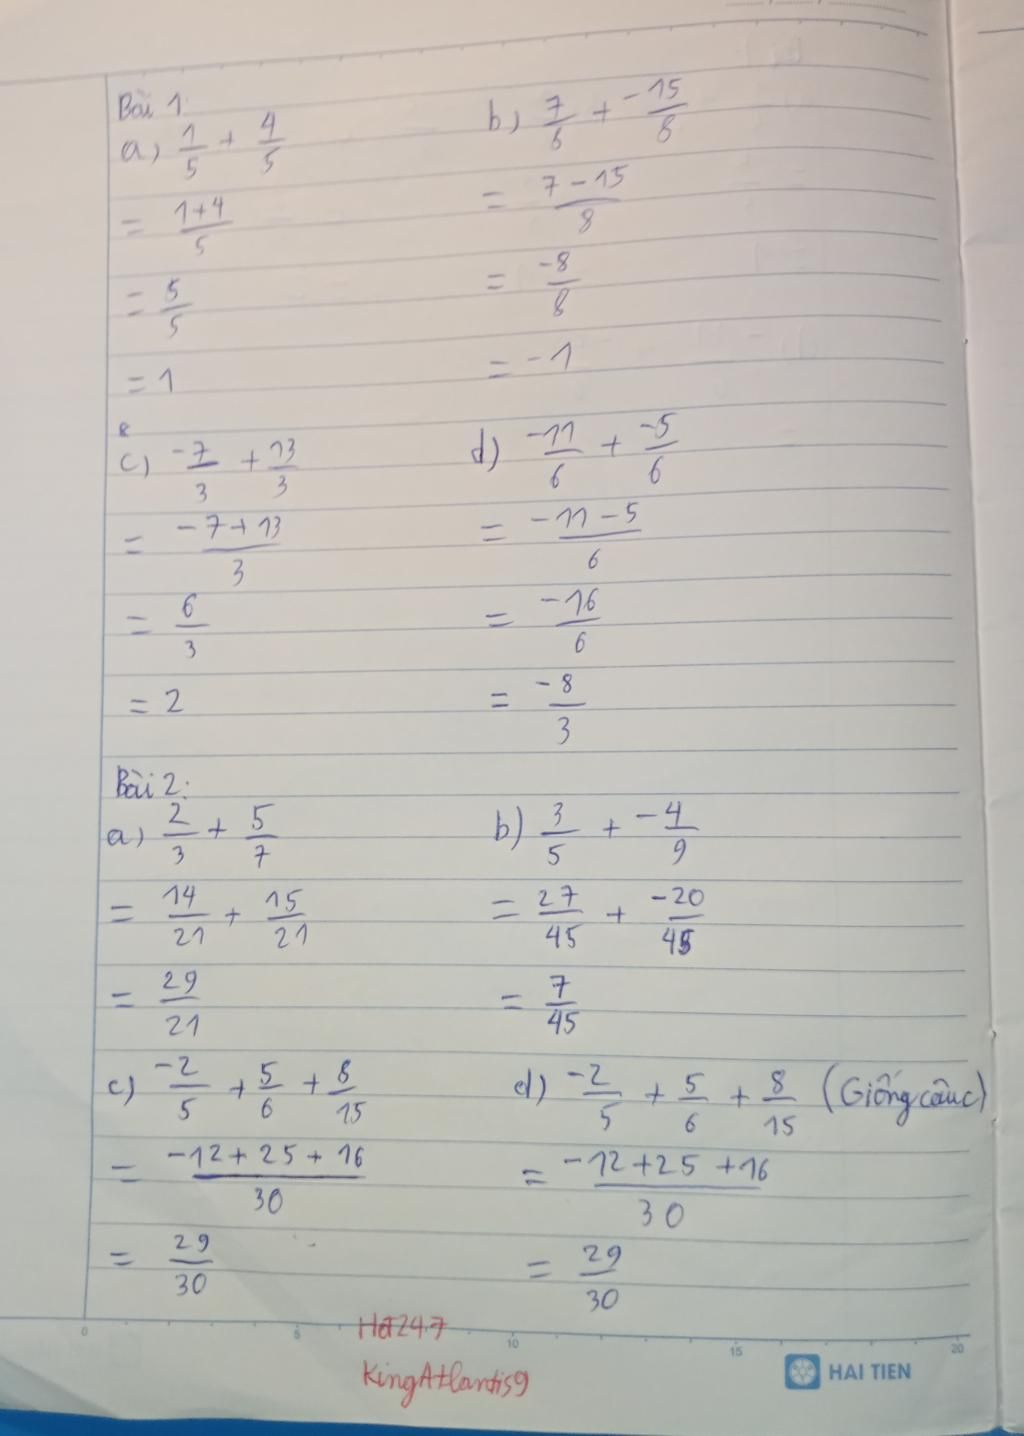 Bài 1:
a) 1/5 + 4/5
= (1+4)/5
= 5/5
= 1
b) 7/6 + -15/8
= (7-15)/8
= -8/8
= -1
c) -7/3 + 13/3
= (-7+13)/3
= 6/3
= 2
d) -11/6 + -5/6
= (-11-5)/6
= -16/6
= -8/3
Bài 2:
a) 2/3 + 5/7
= 14/21 + 15/21
= 29/21
b) 3/5 + -4/9
= 27/45 + -20/45
= 7/45
c) -2/5 + 5/6 + 8/15
= (-12+25+16)/30
= 29/30
d) -2/5 + 5/6 + 8/15 (Giống câu c)
= (-12+25+16)/30
= 29/30
0 5 10 15 20
KingAtlantis9
HAI TIEN